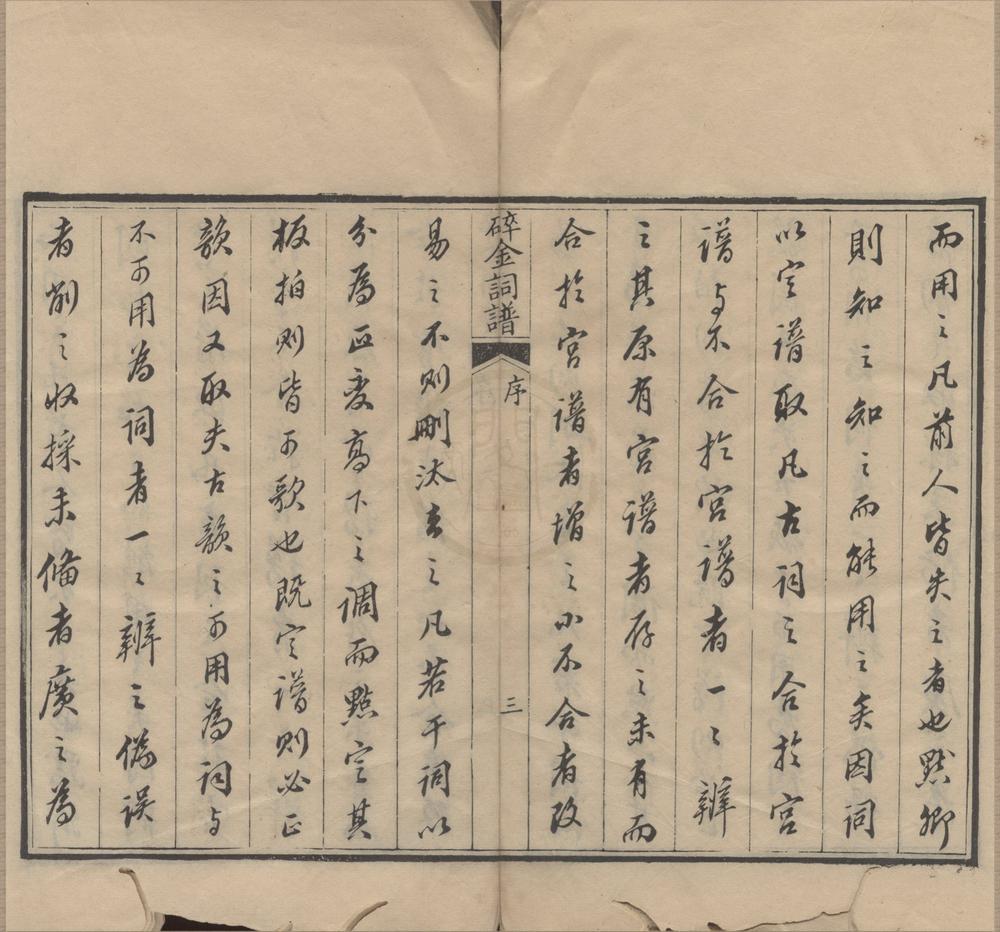 而用之凡前人皆失之者也默卿
則知之知之而能用之矣因詞
以定譜取凡古詞之合於宮
譜与不合於宮譜者一之辨
之其原有宮譜者存之未有而
合於宮譜者增之小不合者改
碎金詞譜
序
三
易之不则刪汰去之凡若干词以
分為正变高下之调而點定其
板拍则皆可歌也既定譜则必正
韻因又取夫古韻之可用為词与
不可用為词者一之辨之偽误
者削之收採未備者廣之為